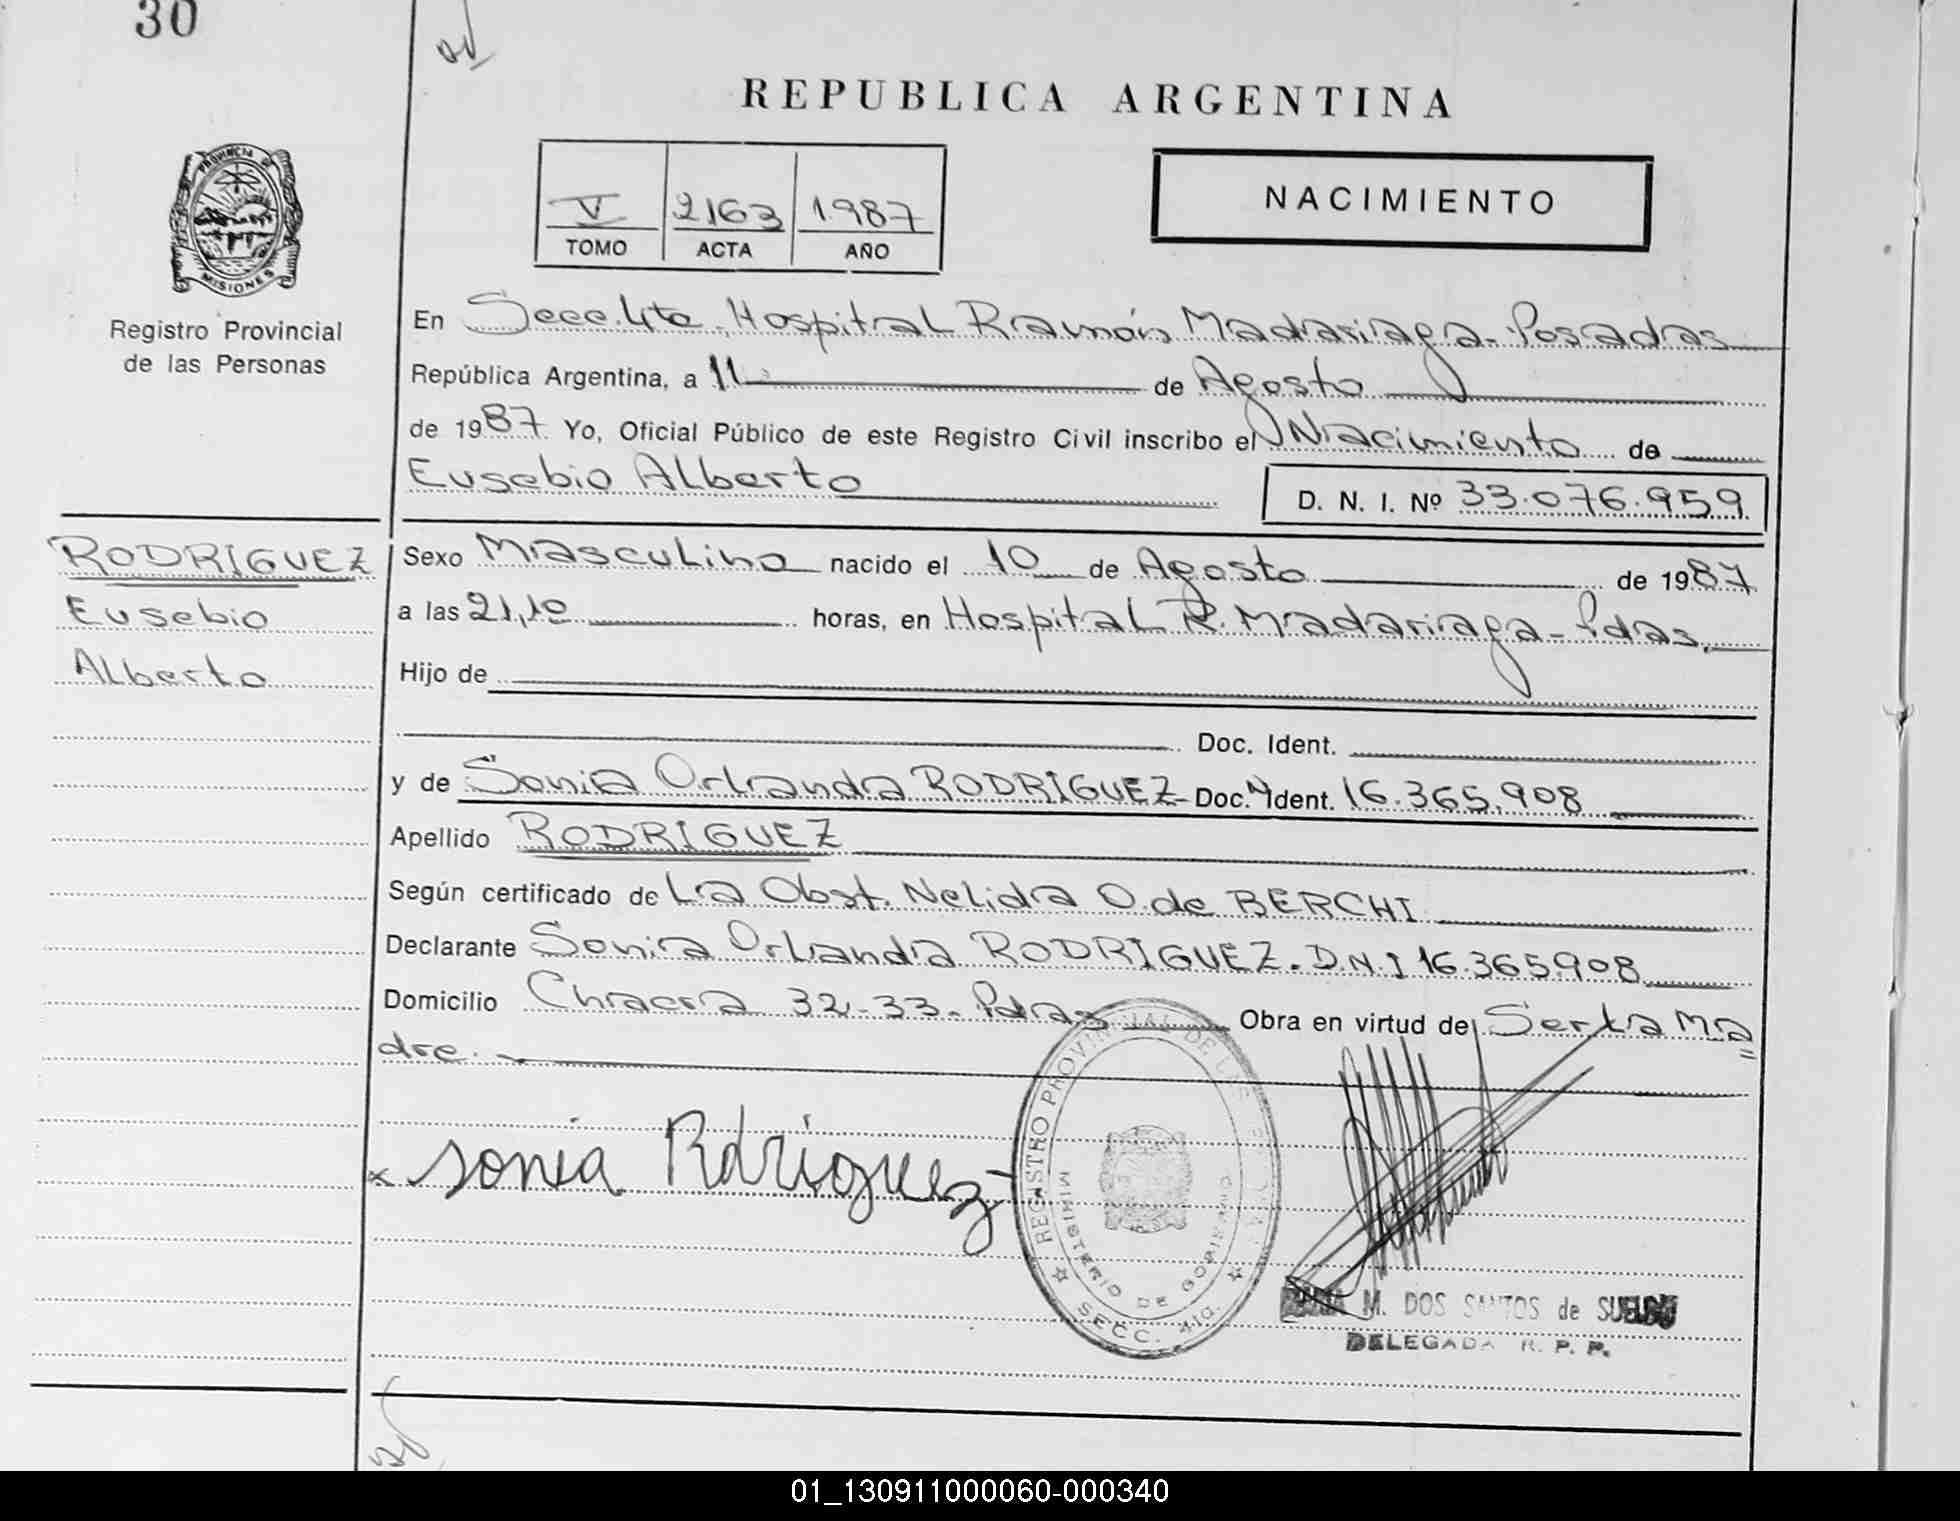 30
REPUBLICA ARGENTINA
V 2163 1987
TOMO ACTA AÑO
NACIMIENTO
PROVINCIA DE
MISIONES
Registro Provincial
de las Personas
En Secc. 4ta. Hospital Ramón Madariaga - Posadas
República Argentina, a 11 de Agosto
de 1987 Yo, Oficial Público de este Registro Civil inscribo el Nacimiento de
Eusebio Alberto
D. N. I. Nº 33.076.959
RODRIGUEZ
Eusebio
Alberto
Sexo Masculino nacido el 10 de Agosto de 1987
a las 21,10 horas, en Hospital R. Madariaga - Pdas.
Hijo de
Doc. Ident.
y de Sonia Orlanda RODRIGUEZ Doc. Ident. 16.365.908
Apellido RODRIGUEZ
Según certificado de La Obst. Nelida O. de BERCHI
Declarante Sonia Orlanda RODRIGUEZ. D.N.I 16.365.908
Domicilio Chacra 32-33- Pdas Obra en virtud de Ser La Ma
dre.
x Sonia Rdriguez
REGISTRO PROVINCIAL DE LAS
MINISTERIO DE GOBIERNO
SECC. 4ta.
M. DOS SANTOS de
DELEGADA R. P. P.
01_130911000060-000340